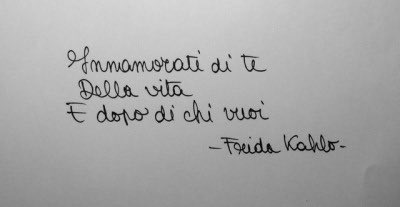 Innamorati di te
Della vita
E dopo di chi vuoi
- Frida Kahlo -